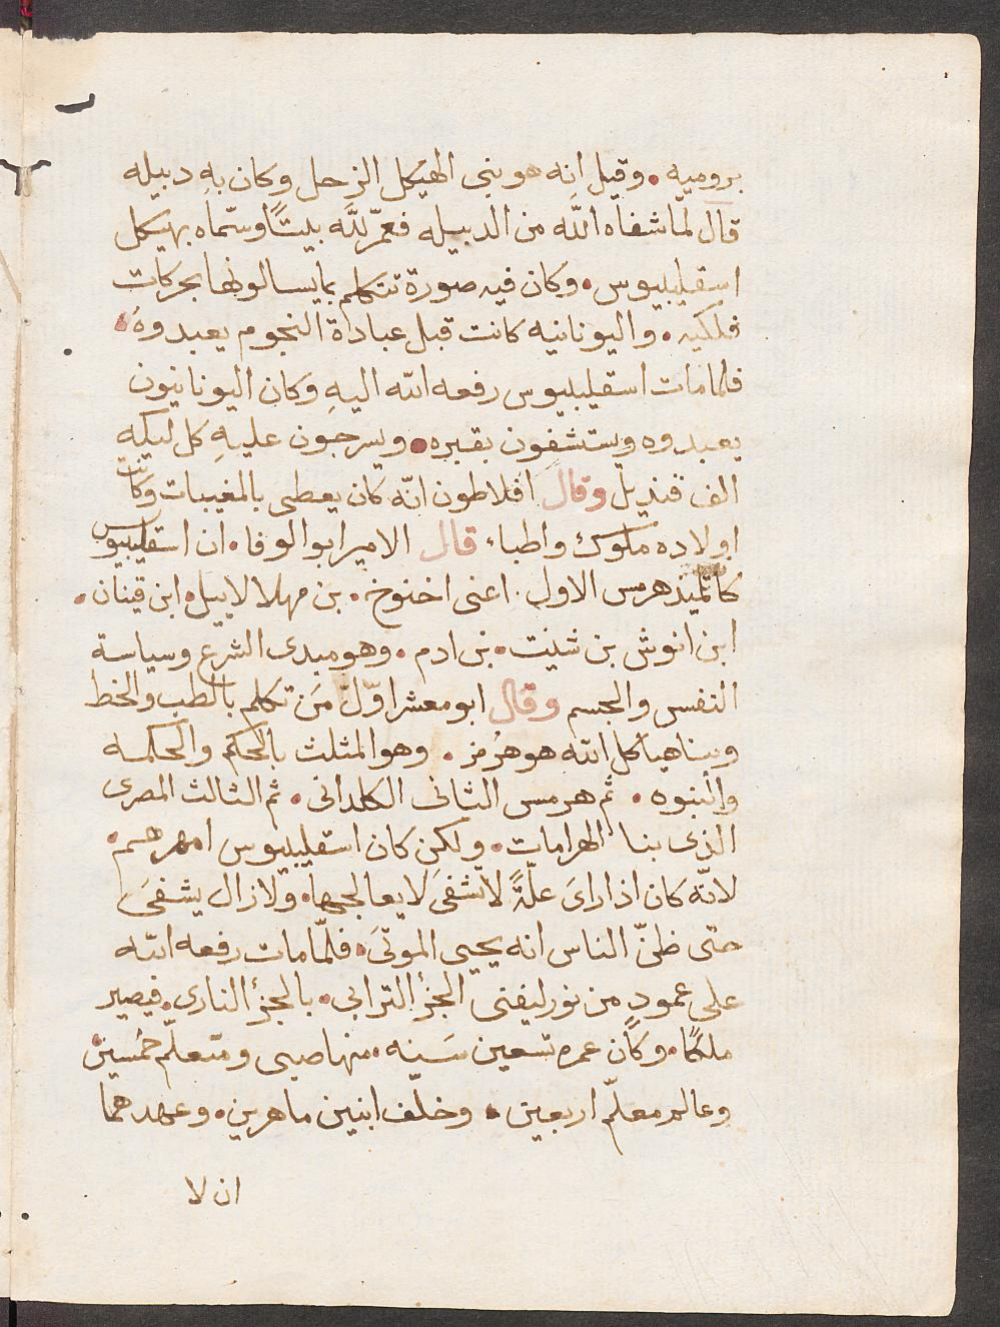 بروميه . وقيل انه هو بنى الهيكل الزحل وكان بهِ دبيله
قال لما شفاه اللّه من الدبيله فعمّر للّه بيتًا وسمّاه بهيكل
اسقيليبيوس . وكان فيه صورة تتكلم بما يسالونها بحركات
فلكيه . واليونانيه كانت قبل عباداة النجوم يعبدوهُ .
فلما مات اسقيليبيوس رفعه الله اليهِ وكان اليونانيون
يعبدوه ويستشفون بقبره . ويسرجون عليهِ كل ليله
الف قنديل وقال افلاطون انّه كان يعطى بالمغيبات وكانت
اولاده ملوك واطباء قال الامير ابو الوفا . ان اسقليبيوس
كا تلميذ هرمس الاول . اعنى اخنوخ . بن مهلالاييل . ابن قينان .
ابن انوش بن شيت . بن ادم . وهو مبدى الشرع وسياسة
النفس والجسم وقال ابو معشر اوّل مَن تكلم بالطب والخط
وبنا هياكل الله هو هرمز . وهو المثلث بالحكم والحكمه
والنبوه . ثم هرمس الثانى الكلدانى . ثم الثالث المصرى
الذى بنا الهرامات . ولكن كان اسقليبيوس امهرهم .
لانّه كان اذا راىَ علّةً لا تشفىَ لا يعالجها . ولا زال يشفىَ
حتى ظنّ الناس انه يحيى الموتىَ . فلمّا مات رفعه الله
على عمودٍ من نور ليفنى الجزؤ الترابى . بالجزؤ النارى . فيصير
ملكًا . وكان عمره تسعين سَنه . منها صبى ومتعلّم خمسين
وعالم معلّم اربعين . وخلّف ابنين ماهرين . وعهد هما
ان لا